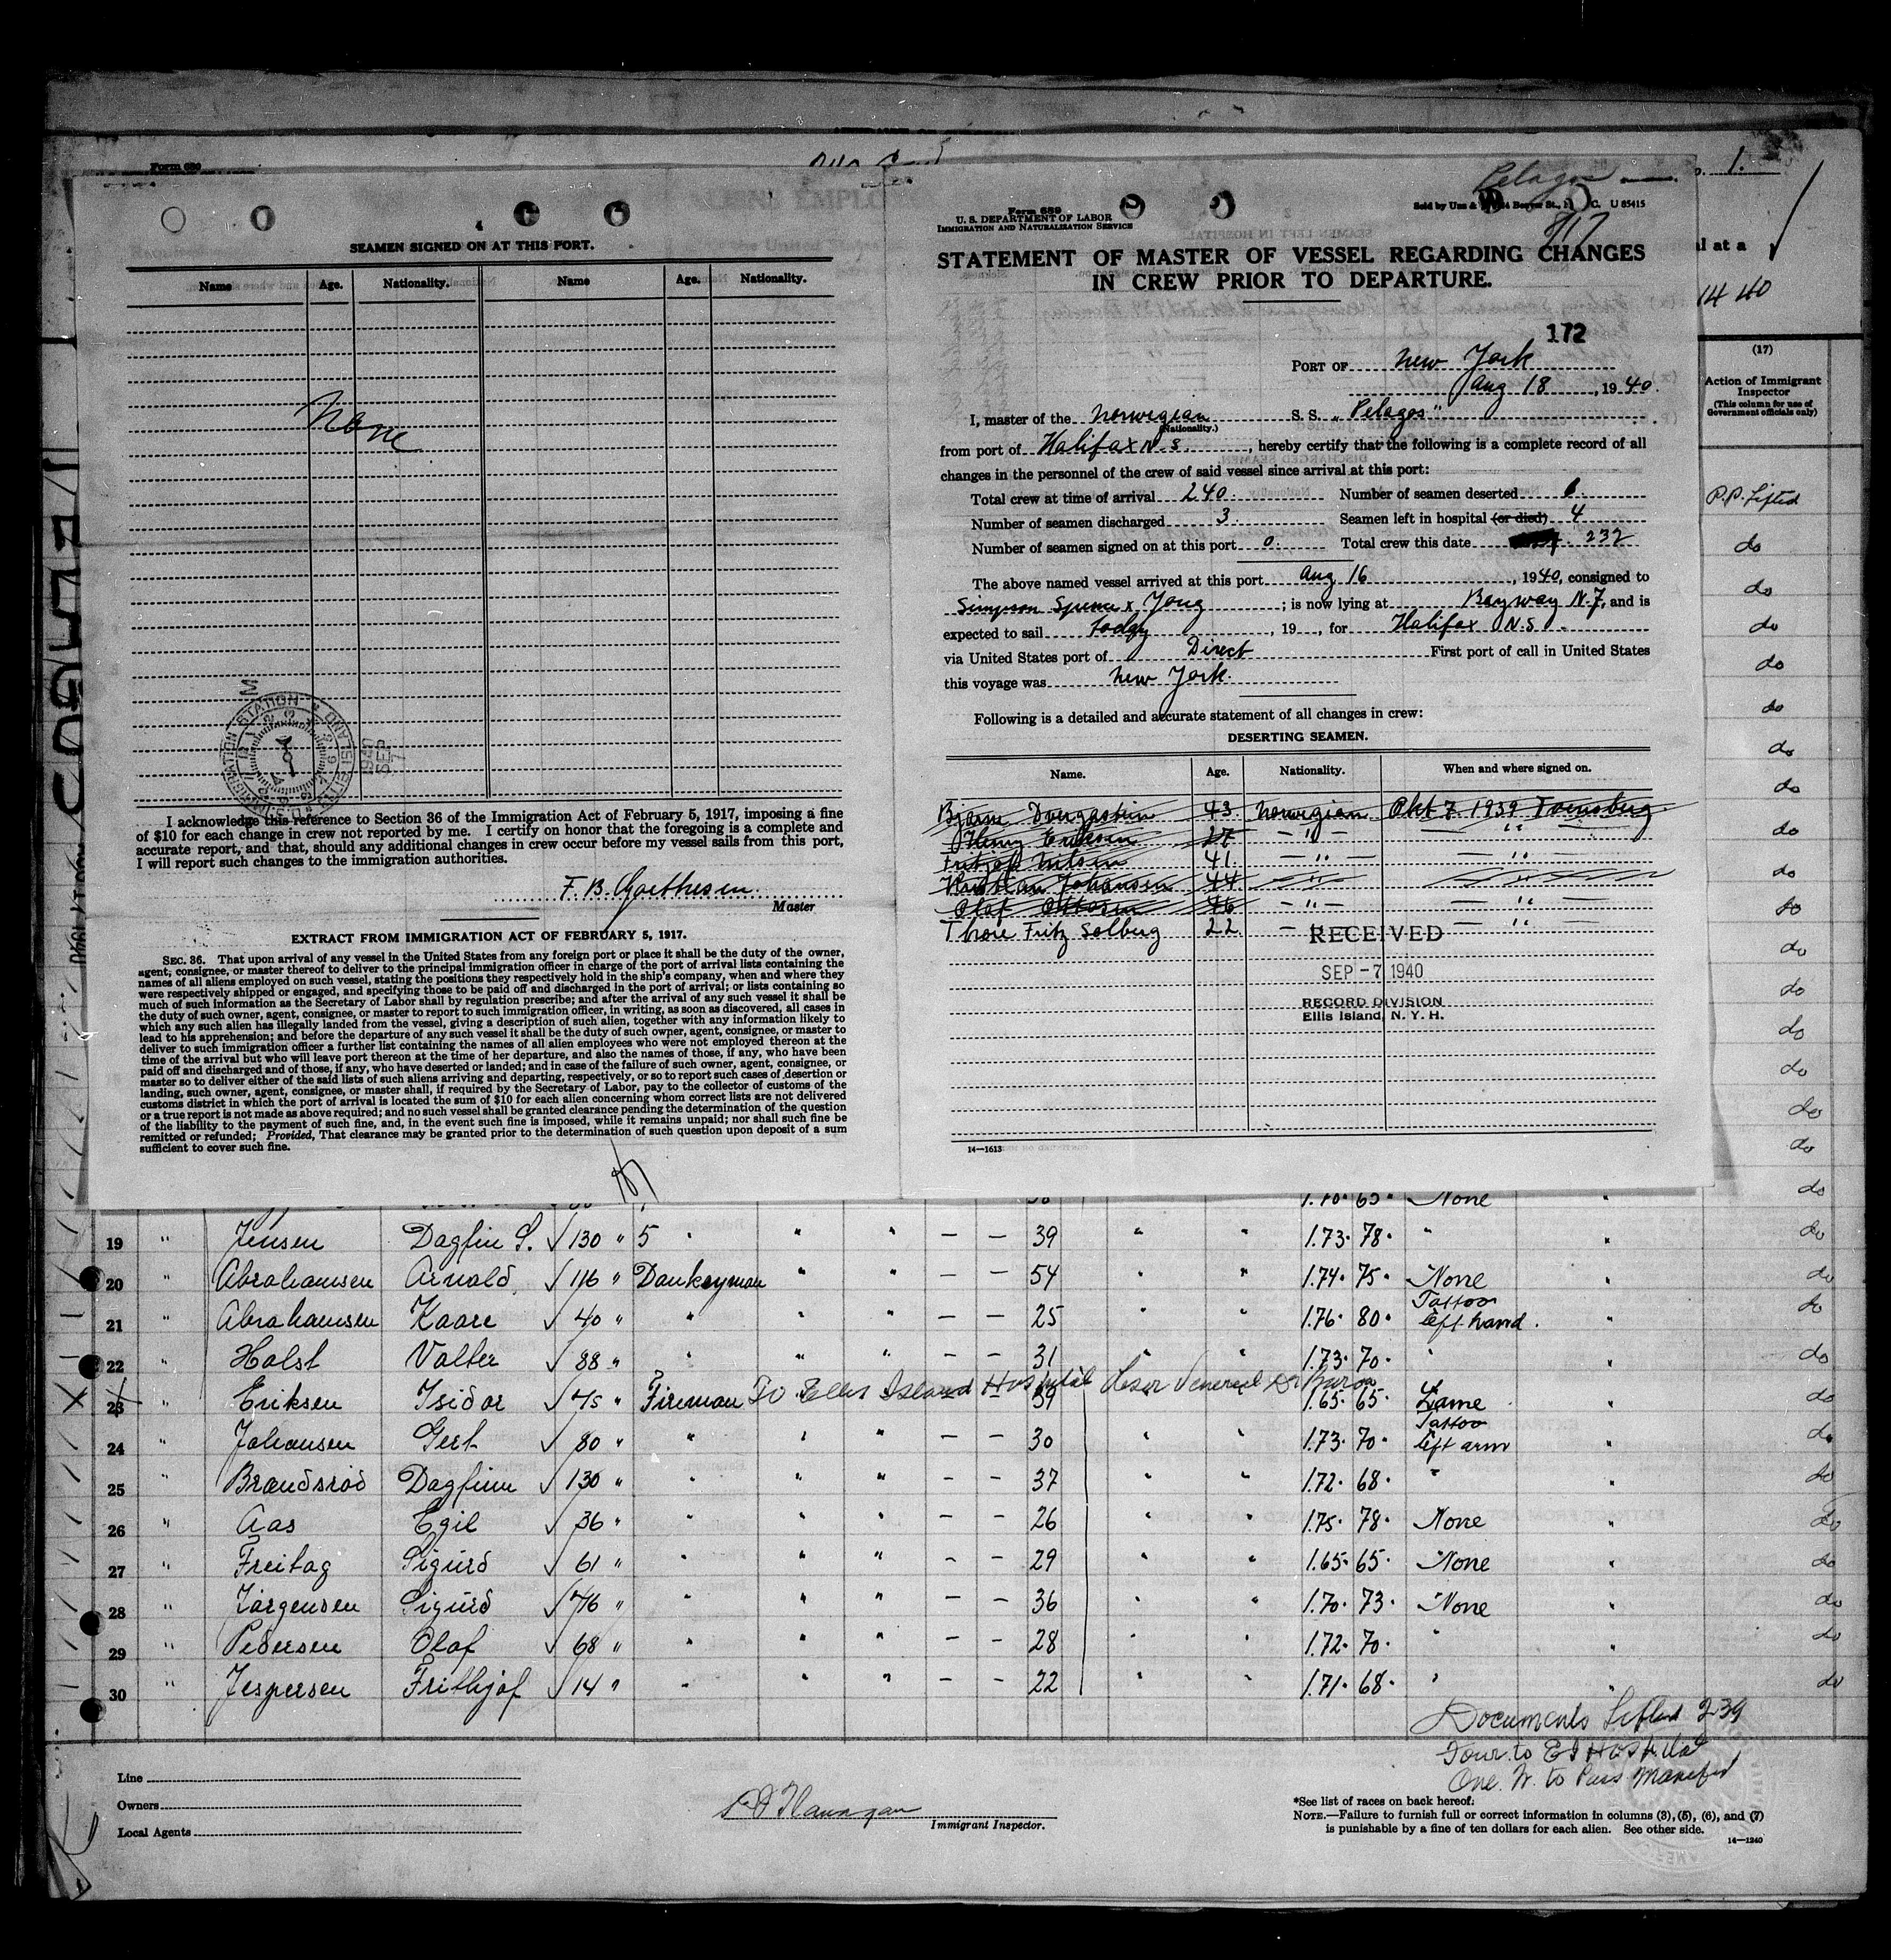 Form 680
SEAMEN SIGNED ON AT THIS PORT.
Name Age. Nationality. Name Age. Nationality.
None
IMMIGRATION STATION ELLIS ISLAND
1940 SEP 7
I acknowledge this reference to Section 36 of the Immigration Act of February 5, 1917, imposing a fine
of $10 for each change in crew not reported by me. I certify on honor that the foregoing is a complete and
accurate report, and that, should any additional changes in crew occur before my vessel sails from this port,
I will report such changes to the immigration authorities.
F. B. Goethesen
Master
EXTRACT FROM IMMIGRATION ACT OF FEBRUARY 5, 1917.
SEC. 36. That upon arrival of any vessel in the United States from any foreign port or place it shall be the duty of the owner,
agent, consignee, or master thereof to deliver to the principal immigration officer in charge of the port of arrival lists containing the
names of all aliens employed on such vessel, stating the positions they respectively hold in the ship's company, when and where they
were respectively shipped or engaged, and specifying those to be paid off and discharged in the port of arrival; or lists containing so
much of such information as the Secretary of Labor shall by regulation prescribe; and after the arrival of any such vessel it shall be
the duty of such owner, agent, consignee, or master to report to such immigration officer, in writing, as soon as discovered, all cases in
which any such alien has illegally landed from the vessel, giving a description of such alien, together with any information likely to
lead to his apprehension; and before the departure of any such vessel it shall be the duty of such owner, agent, consignee, or master to
deliver to such immigration officer a further list containing the names of all alien employees who were not employed thereon at the
time of the arrival but who will leave port thereon at the time of her departure, and also the names of those, if any, who have been
paid off and discharged and of those, if any, who have deserted or landed; and in case of the failure of such owner, agent, consignee, or
master so to deliver either of the said lists of such aliens arriving and departing, respectively, or so to report such cases of desertion or
landing, such owner, agent, consignee, or master shall, if required by the Secretary of Labor, pay to the collector of customs of the
customs district in which the port of arrival is located the sum of $10 for each alien concerning whom correct lists are not delivered
or a true report is not made as above required; and no such vessel shall be granted clearance pending the determination of the question
of the liability to the payment of such fine, and, in the event such fine is imposed, while it remains unpaid; nor shall such fine be
remitted or refunded; Provided, That clearance may be granted prior to the determination of such question upon deposit of a sum
sufficient to cover such fine.
Pelagos
8/17
Form 689
U. S. DEPARTMENT OF LABOR
IMMIGRATION AND NATURALIZATION SERVICE
Sold by Unz & Beaver St., N. Y. C. U 85415
STATEMENT OF MASTER OF VESSEL REGARDING CHANGES
IN CREW PRIOR TO DEPARTURE.
172
PORT OF New York
Aug 18, 1940.
I, master of the Norwegian S. S. "Pelagos"
(Nationality.)
from port of Halifax N. S., hereby certify that the following is a complete record of all
changes in the personnel of the crew of said vessel since arrival at this port:
Total crew at time of arrival 240. Number of seamen deserted
Number of seamen discharged 3. Seamen left in hospital (or died) 4
Number of seamen signed on at this port 0. Total crew this date 232
The above named vessel arrived at this port Aug 16, 1940, consigned to
Simpson Spence & Young; is now lying at Bayway N.J, and is
expected to sail today, 19 , for Halifax N.S.
via United States port of Direct First port of call in United States
this voyage was New York.
Following is a detailed and accurate statement of all changes in crew:
DESERTING SEAMEN.
Name. Age. Nationality. When and where signed on.
Bjarne 43 Norwegian Okt 7 1939 Toensberg
Henry Eriksen 27 — " — — " —
Fritjof Nilsen 41 — " — — " —
Kristian Johansen 44 — " — — " —
Olaf Ottosen 46 — " — — " —
Thore Fritz Solberg 22 — " — — " —
RECEIVED
SEP -7 1940
RECORD DIVISION
Ellis Island, N. Y. H.
14—1613
1.
al at a
14 40
(17)
Action of Immigrant
Inspector
(This column for use of
Government officials only)
P.P. Lifted
do
do
do
do
do
do
do
do
do
do
do
do
do
do
do
do
1.70 65 None do
19 " Jensen Dagfin S. √ 130 " 5 " " " — — 39 " " 1.73 78 " " do
20 " Abrahamsen Arnold √ 116 " Donkeyman " " — — 54 " " 1.74 75 None do
21 " Abrahamsen Kaare √ 40 " " " " — — 25 " " 1.76 80 Tattoo left hand. " do
22 " Holst Valter √ 88 " " " " — — 31 " " 1.73 70 " " do
23 " Eriksen Isidor √ 75 " Fireman To Ellis Island Hospital 39 1.65 65 Lame " do
24 " Johansen Gert √ 80 " " " " — — 30 " " 1.73 70 Tattoo left arm " do
25 " Brandsrød Dagfinn √ 130 " " " " — — 37 " " 1.72 68 " " do
26 " Aas Egil √ 36 " " " " — — 26 " " 1.75 78 None " do
27 " Freitag Sigurd √ 61 " " " " — — 29 " " 1.65 65 None " do
28 " Jørgensen Sigurd √ 76 " " " " — — 36 " " 1.70 73 None " do
29 " Pedersen Olaf √ 68 " " " " — — 28 " " 1.72 70 " " do
30 " Jespersen Frithjof √ 14 " " " " — — 22 " " 1.71 68 " " do
Documents Lifted 239
Four to E I Hospital
One to Pass Manifest
Line
Owners
Local Agents
Flanagan
Immigrant Inspector.
*See list of races on back hereof.
NOTE.—Failure to furnish full or correct information in columns (3), (5), (6), and (7)
is punishable by a fine of ten dollars for each alien. See other side.
14—1240